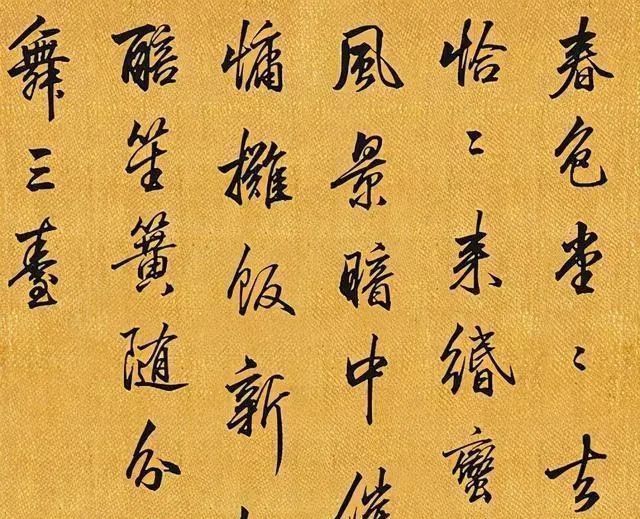 春色堂〻去
恰〻来緡蠻
風景暗中
慵攤飯新
醅笙簧随分
舞三臺